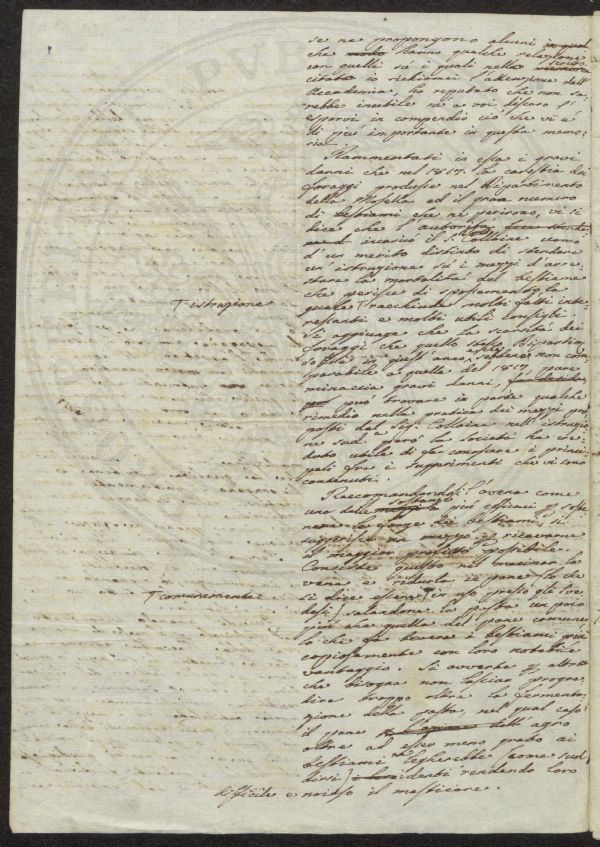 se ne propongono alcuni in qual
che modo hanno qualche relazione
con quelli su i quali nella
citata io richiamai l'attenzione dell'
Accademia, ho reputato che non sa-
rebbe inutile ne a voi discaro l'
esporvi in compendio ciò che vi è
di più importante in questa memo-
ria.
Rammentati in essa i gravi
danni che nel 1817. la carestia dei
foraggi produsse nel Dipartimento
della Mosella ed il gran numero
di bestiami che ne perirono, vi si
dice che l'autorità
incaricò il Sr. Collaine uomo
d'un merito distinto di stendere
un'istruzione su i mezzi d'arre-
stare la mortalità del bestiame
che periva di spossamento, la
quale racchiude molti fatti inte-
ressanti e molti utili consigli.
T istruzione
Si aggiunge che la scarsità dei
foraggi che quello stesso Dipartim.
soffre in quest'anno, sebbene non com-
parabile a quella del 1817, pare
minaccia gravi danni,
può trovare in parte qualche
rimedio nella pratica dei mezzi pro-
posti dal Sig. Collaine nell'istruzio-
ne sud. però la Società ha cre-
duto utile di far conoscere i princi-
pali fra i suggerimenti che vi sono
contenuti.
Raccomandandosi l'avena come
una delle sostanze le più efficaci p. soste-
nere le forze dei bestiami, si
suggerisce un mezzo p. ricavarne
il maggior profitto possibile.
Consiste questo nel macinar la
vena e ridurla in pane (lo che
si dice essere in uso presso gli Sve-
desi) salandone la pasta un poco
T comunemente
più che quella del pane comune
lo che fa bevere i bestiami più
copiosamente con loro notabile
vantaggio. Si avverte p. altro
che bisogna non lasciar progre-
dire troppo oltre la fermenta-
zione della pasta, nel qual caso
il pane dell'agro
oltre ad esser meno grato ai
bestiami legherebbe (come suol
dirsi) i denti rendendo loro
difficile e noioso il masticare.